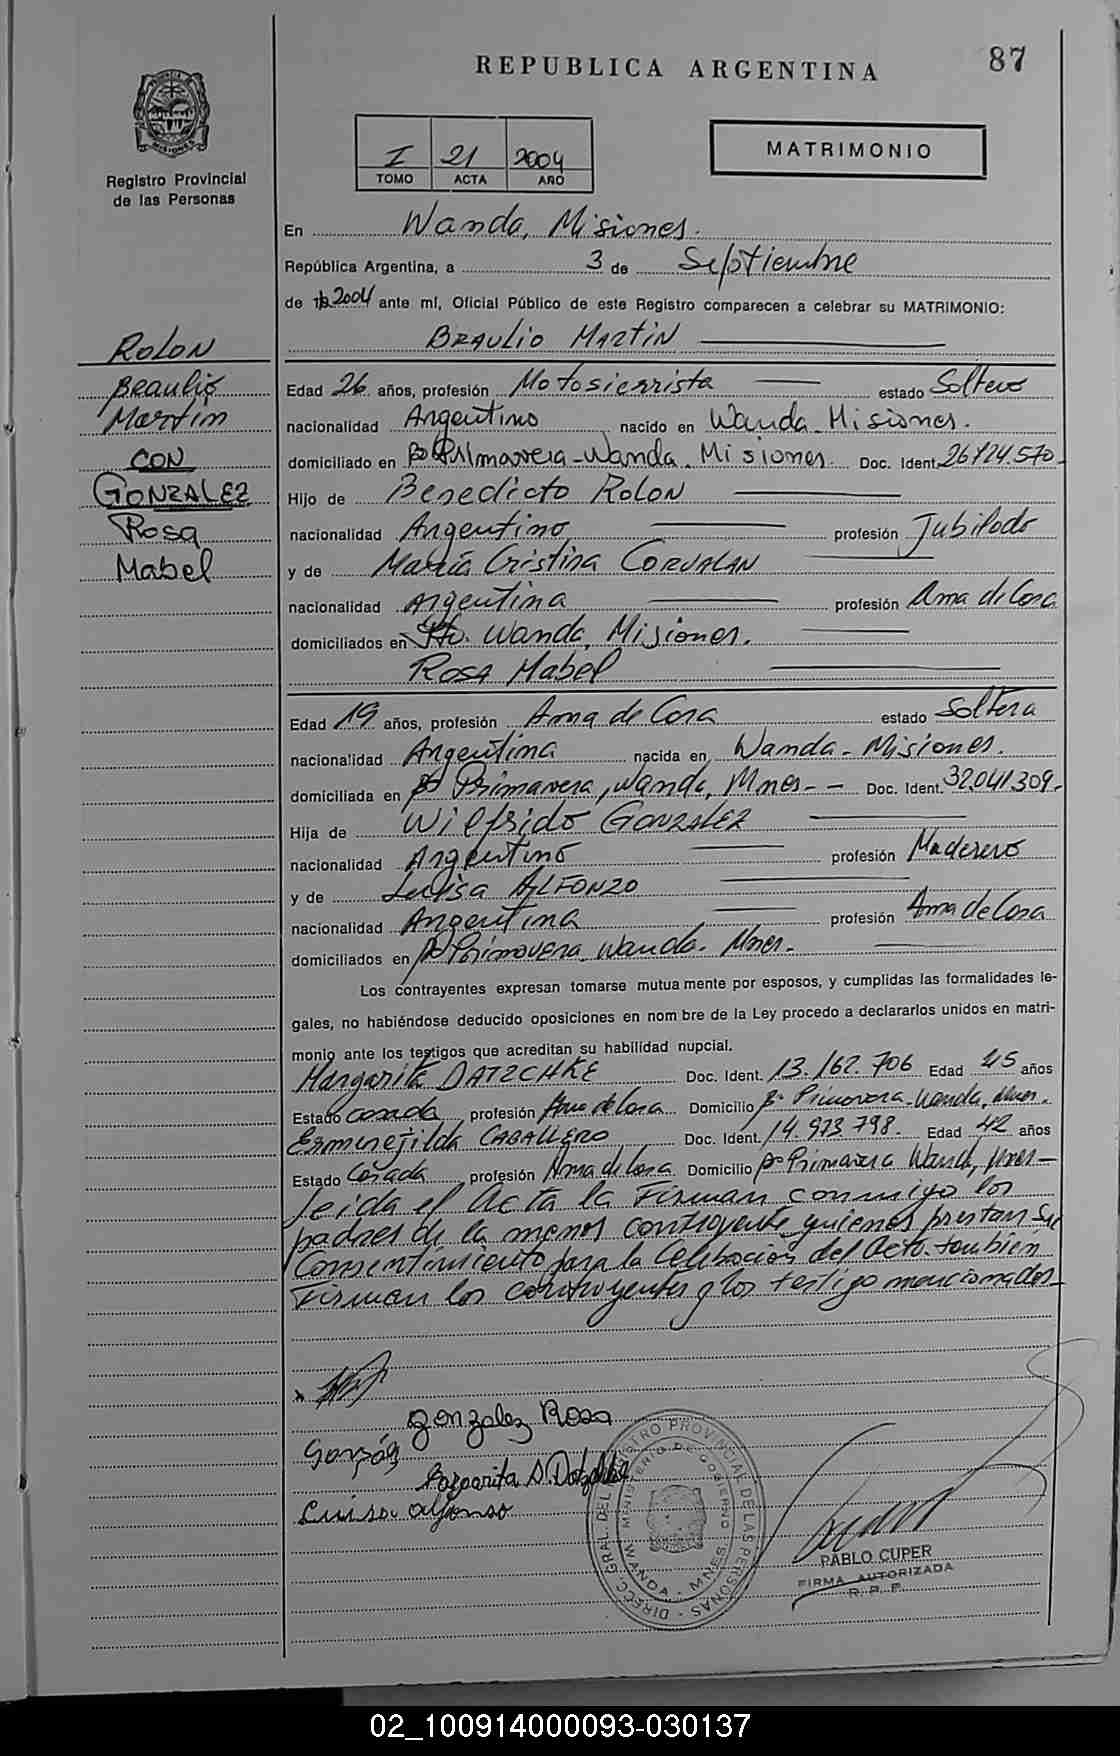 REPUBLICA ARGENTINA
87
MISIONES
Registro Provincial
de las Personas
I 21 2004
TOMO ACTA AÑO
MATRIMONIO
En Wanda, Misiones.
República Argentina, a 3 de Septiembre
de 2004 ante mí, Oficial Público de este Registro comparecen a celebrar su MATRIMONIO:
BRAULIO MARTIN
ROLON
Braulio
Martin
CON
GONZALEZ
Rosa
Mabel
Edad 26 años, profesión Motosierrista estado Soltero
nacionalidad Argentino nacido en Wanda - Misiones.
domiciliado en Bº Primavera - Wanda. Misiones. Doc. Ident. 26.124.570-
Hijo de Benedicto ROLON
nacionalidad Argentino profesión Jubilado
y de María Cristina CORVALAN
nacionalidad Argentina profesión Ama de Casa
domiciliados en Pto. Wanda, Misiones.
ROSA Mabel
Edad 19 años, profesión Ama de Casa estado Soltera
nacionalidad Argentina nacida en Wanda - Misiones.
domiciliada en Bº Primavera, Wanda, Mnes- - Doc. Ident. 32.041.309-
Hija de Wilfrido GONZALEZ
nacionalidad Argentino profesión Maderero
y de Luisa ALFONZO
nacionalidad Argentina profesión Ama de Casa
domiciliados en Bº Primavera, Wanda. Mnes.
Los contrayentes expresan tomarse mutuamente por esposos, y cumplidas las formalidades le-
gales, no habiéndose deducido oposiciones en nom bre de la Ley procedo a declararlos unidos en matri-
monio ante los testigos que acreditan su habilidad nupcial.
Margarita DATZCHKE Doc. Ident. 13.162.706 Edad 45 años
Estado casada profesión Ama de Casa Domicilio Bº Primavera - Wanda, Mnes.
Ermenejilda CABALLERO Doc. Ident. 14.973.798. Edad 42 años
Estado Casada profesión Ama de Casa Domicilio Bº Primavera Wanda, Mnes-
Leida el Acta la Firman conmigo los
padres de la menor contrayente quienes prestan su
Consentimiento para la Celebración del Acto. tambien
Firman los contrayentes y los testigo mencionados-
Gonzalez Rosa
Margarita D.
Luisa Alfonso
DIREC. GRAL. DEL REGISTRO PROVINCIAL DE LAS PERSONAS
MINISTERIO DE GOBIERNO
WANDA - MNES.
PABLO CUPER
FIRMA AUTORIZADA
R. P. P.
02_100914000093-030137